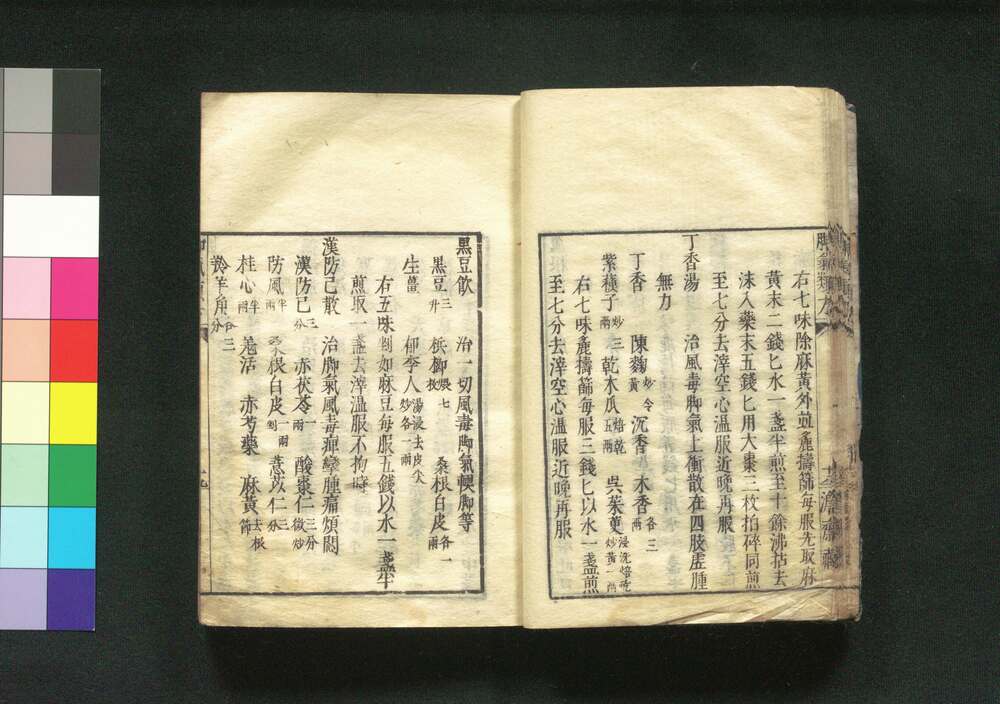 右七味除麻黄外並麁擣篩每服先取麻
黄末二錢匕水一盞半煎至十餘沸掠去
沫入藥末五錢匕用大棗二枚拍碎同煎
至七分去滓空心溫服近晚再服
丁香湯 治風毒脚氣上衝散在四肢虛腫
無力
丁香 陳麴炒令黄 沉香 木香各三
紫蘇子炒三兩 乾木瓜焙乾五兩 吳茱萸浸洗焙乾炒黄一兩
右七味麁擣篩每服三錢匕以水一盞煎
至七分去滓空心溫服近晚再服
黑豆飲 治一切風毒脚氣輭脚等
黑豆三升 檳榔七枚 桑根白皮各一兩
生薑 郁李人湯浸去皮尖炒各一兩
右五味剉如麻豆每服五錢以水一盞半
煎取一盞去滓溫服不拘時
漢防己散 治脚氣風毒痺攣腫痛煩悶
漢防己三分 赤茯苓一兩 酸棗仁三分微炒
防風半兩 桑根白皮一兩剉 薏苡仁三分
桂心半兩 羗活 赤芍藥 麻黄去根節
羚羊角各三分